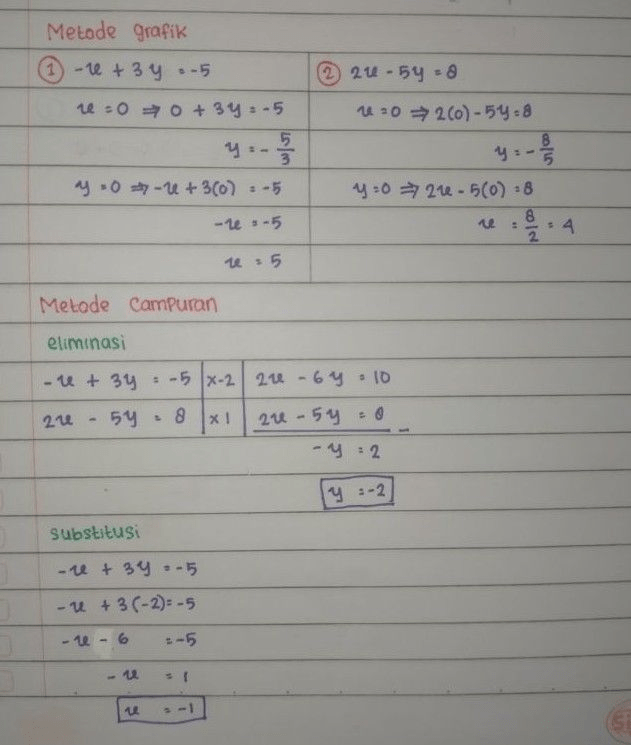 Metode grafik
① -x + 3y = -5
x = 0 ⇒ 0 + 3y = -5
y = - 5/3
y = 0 ⇒ -x + 3(0) = -5
-x = -5
x = 5
② 2x - 5y = 8
x = 0 ⇒ 2(0) - 5y = 8
y = - 8/5
y = 0 ⇒ 2x - 5(0) = 8
x = 8/2 = 4
Metode Campuran
eliminasi
-x + 3y = -5 | x-2 | 2x - 6y = 10
2x - 5y = 8 | x 1 | 2x - 5y = 8 -
-y = 2
y = -2
substitusi
-x + 3y = -5
-x + 3(-2) = -5
-x - 6 = -5
-x = 1
x = -1